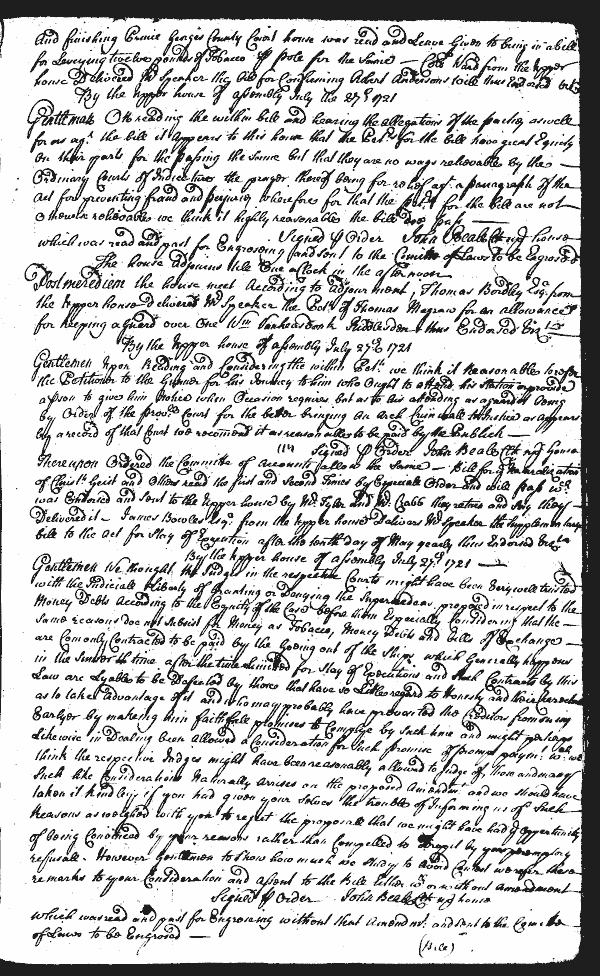 and finishing Prince Georges County Court house was read and Leave Given to bring in a bill
for Levying twelve pounds of Tobacco p pole for the Same — Coll Ward from the upper
house Delivered Mr Speaker the bill for Confirming Albert Andersons will thus Endorsed
By the upper house of assembly July the 27th 1721
Gentlemen On reading the within bill and hearing the allegations of the partys as well
for as agt the bill it appears to this house that the Petrs for the bill have great Equity
on their parts for the passing the Same but that they are no ways releivable by the
Ordinary Courts of Judicature the prayer thereof being for releif agt a paragraph of the
Act for preventing fraud and perjury wherefore for that the Petrs for the bill are not
otherwise releivable we think it highly reasonable the bill do pass —
Signed p Order John Beale Clk up house
which was read and past for Engrossing and sent to the Comittee of Laws to be Engrossed
The house adjourns till One a Clock in the afternoon
Post meridiem the house meet According to adjournment, Thomas Bordley Esqr from
the upper house Delivered Mr Speaker the Petn of Thomas Megraw for an allowance
for keeping a guard over One Wm Vanhaesdonk Riddlesden thus Endorsed
By the upper house of assembly July 27th 1721
Gentlemen Upon Reading and Considering the within Petn we think it Reasonable to refer
the Petitioner to the for his Journey to him who Ought to attend his Station or provide
a person to give him Notice when Occasion requires but as to his attending as a guard it being
by Order of the provll Court for the better bringing an Arch Criminall to Justice as appears
by a record of that Court we recomend it as reasonable to be paid by the Publick —
Signed p Order John Beale Clk up house
Thereupon Ordered the Committe of Accounts allow the Same — Bill for of
of Christr Geist and Others read the first and Second Times by Especiale Order and will pass wch
was Endorsed and sent to the upper house by Mr Tyler and Mr Crabb they return and say they
Delivered it — James Bowles Esqr from the upper house Delivers Mr Speaker the Supplementary
bill to the Act for Stay of Execution after the tenth day of May yearly thus Endorsed
By the upper house of assembly July 27th 1721 —
Gentlemen We thought the Judges in the respective Courts might have been very well trusted
with the Judiciale liberty of Granting or Denying the Supersedeas proposed in respect to the
Money Debts According to the Equity of the Case before them Especially Considering that the
Same reasons doe not Subsist for Money as Tobacco, Money Debts and bills of Exchange
are Comonly Contracted to be paid by the Going out of the Ships, which Generally happens
in the Summer time after the time Limited for Stay of Executions and Such Contracts by this
Law are Lyable to be Defeated by those that have so Little regard to Honesty and
as to take Advantage of it and who may probably have prevented the Creditors from suing
Earlyer by making him faithfull promises to Complye by Such time and might perhaps
Likewise in Dealing been allowed a Consideration for Such promise of prompt paymt
think the respective Judges might have been reasonably allowed to Judge of, those and many
Such like Considerations Naturally Arrises on the proposed Amendmt and we should have
taken it kindly if you had given your Selves the trouble of Informing us of Such
Reasons as weighed with you to reject the proposall that we might have had opportunity
of being Convinced by your reasons rather than Compelled to by your peremptory
refusall. However Gentlemen to show how much we Study to avoid Contest we refer these
remarks to your Consideration and assent to the Bill Either with or without Amendment
Signed p Order John Beale Clk up house
which was read and past for Engrossing without that Amendmt and sent to the Comittee
of Laws to be Engrossed —